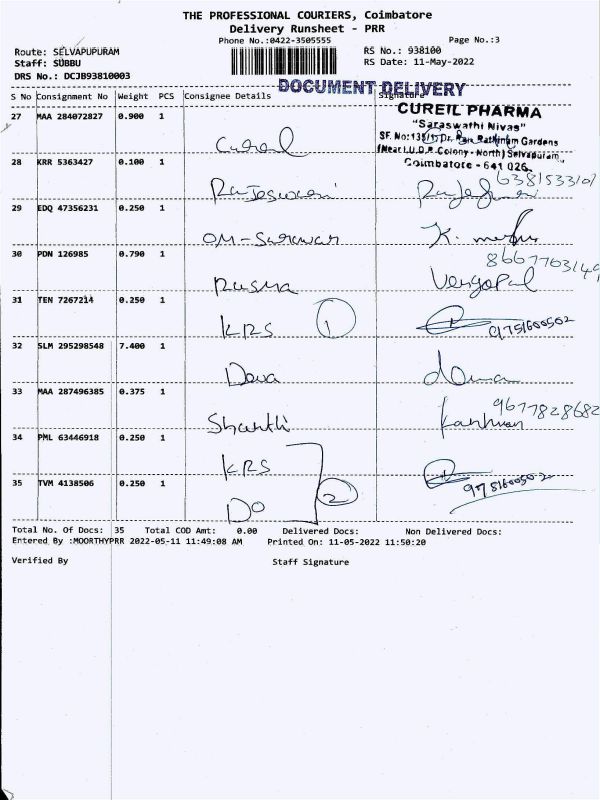 THE PROFESSIONAL COURIERS, Coimbatore
Delivery Runsheet - PRR
Phone No.:0422-3505555
Page No.:3
Route: SELVAPUPURAM
RS No.: 938100
Staff: SUBBU
RS Date: 11-May-2022
DRS No.: DCJB93810003
DOCUMENT DELIVERY
S No Consignment No Weight PCS Consignee Details Signature
CUREIL PHARMA
"Saraswathi Nivas"
27 MAA 284072827 0.900 1
SF. No: Dr. Rathinam Gardens
(Near I.U.D.P. Colony - North) Selvapuram,
Coimbatore - 641 026.
Cureil
28 KRR 5363427 0.100 1
Rajeswari
29 EDQ 47356231 0.250 1
OM-Saravan K.
30 PDN 126985 0.790 1
Venugopal
31 TEN 7267214 0.250 1
KRS 1 9751600502
32 SLM 295298548 7.400 1
Deva
33 MAA 287496385 0.375 1
9677828682
Shanthi
34 PML 63446918 0.250 1
KRS
35 TVM 4138506 0.250 1
2
DO
Total No. Of Docs: 35 Total COD Amt: 0.00 Delivered Docs: Non Delivered Docs:
Entered By :MOORTHYPRR 2022-05-11 11:49:08 AM Printed On: 11-05-2022 11:50:20
Verified By Staff Signature